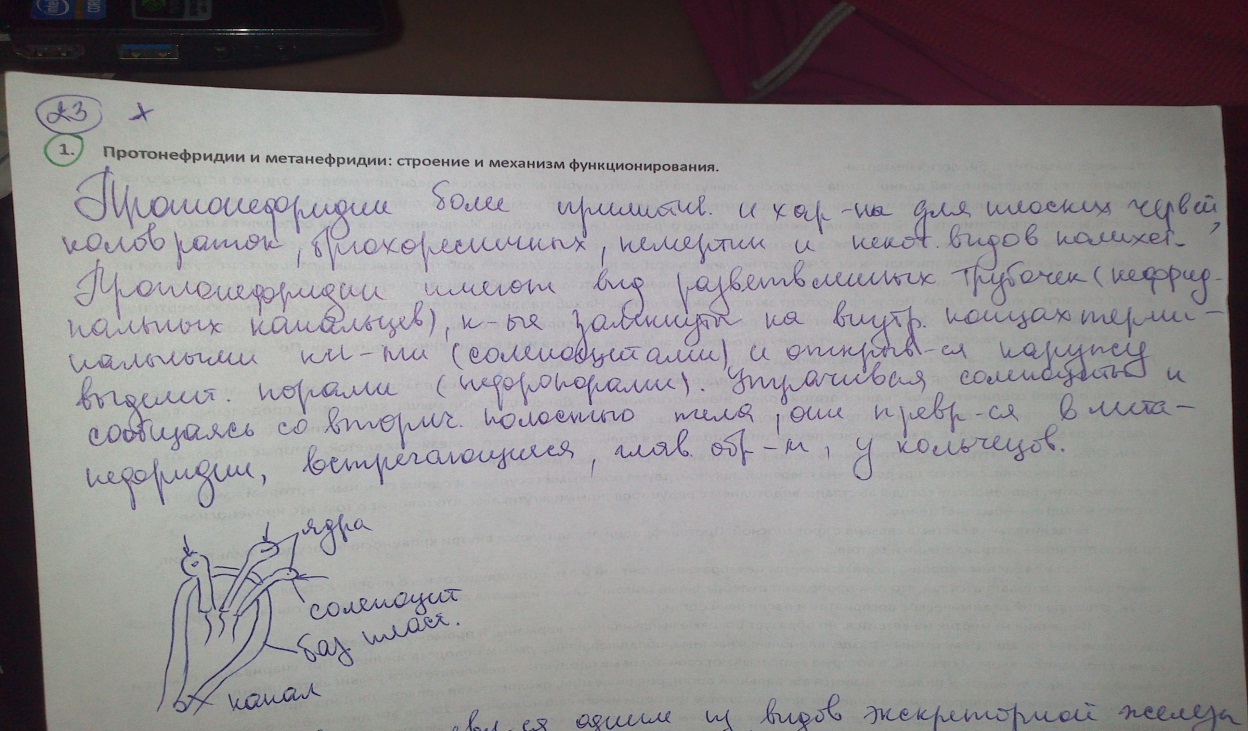 23 +
1. Протонефридии и метанефридии: строение и механизм функционирования.
Протонефридии более примитив. и хар-на для плоских червей,
коловраток, брюхоресничных, немертин и некот. видов полихет.
Протонефридии имеют вид разветвленных трубочек (нефриди-
альных канальцев), к-ые замкнуты на внутр. концах терми-
нальными кл-ми (соленоцитами) и открыв-ся наружу
выделит. порами (нефропорами). Утрачивая соленоциты и
сообщаясь со вторич. полостью тела, они превр-ся в мета-
нефридии, встречающиеся, глав. обр-м, у кольчецов.
ядра
соленоцит
баз пласт.
канал
ся одним из видов экскреторной железы